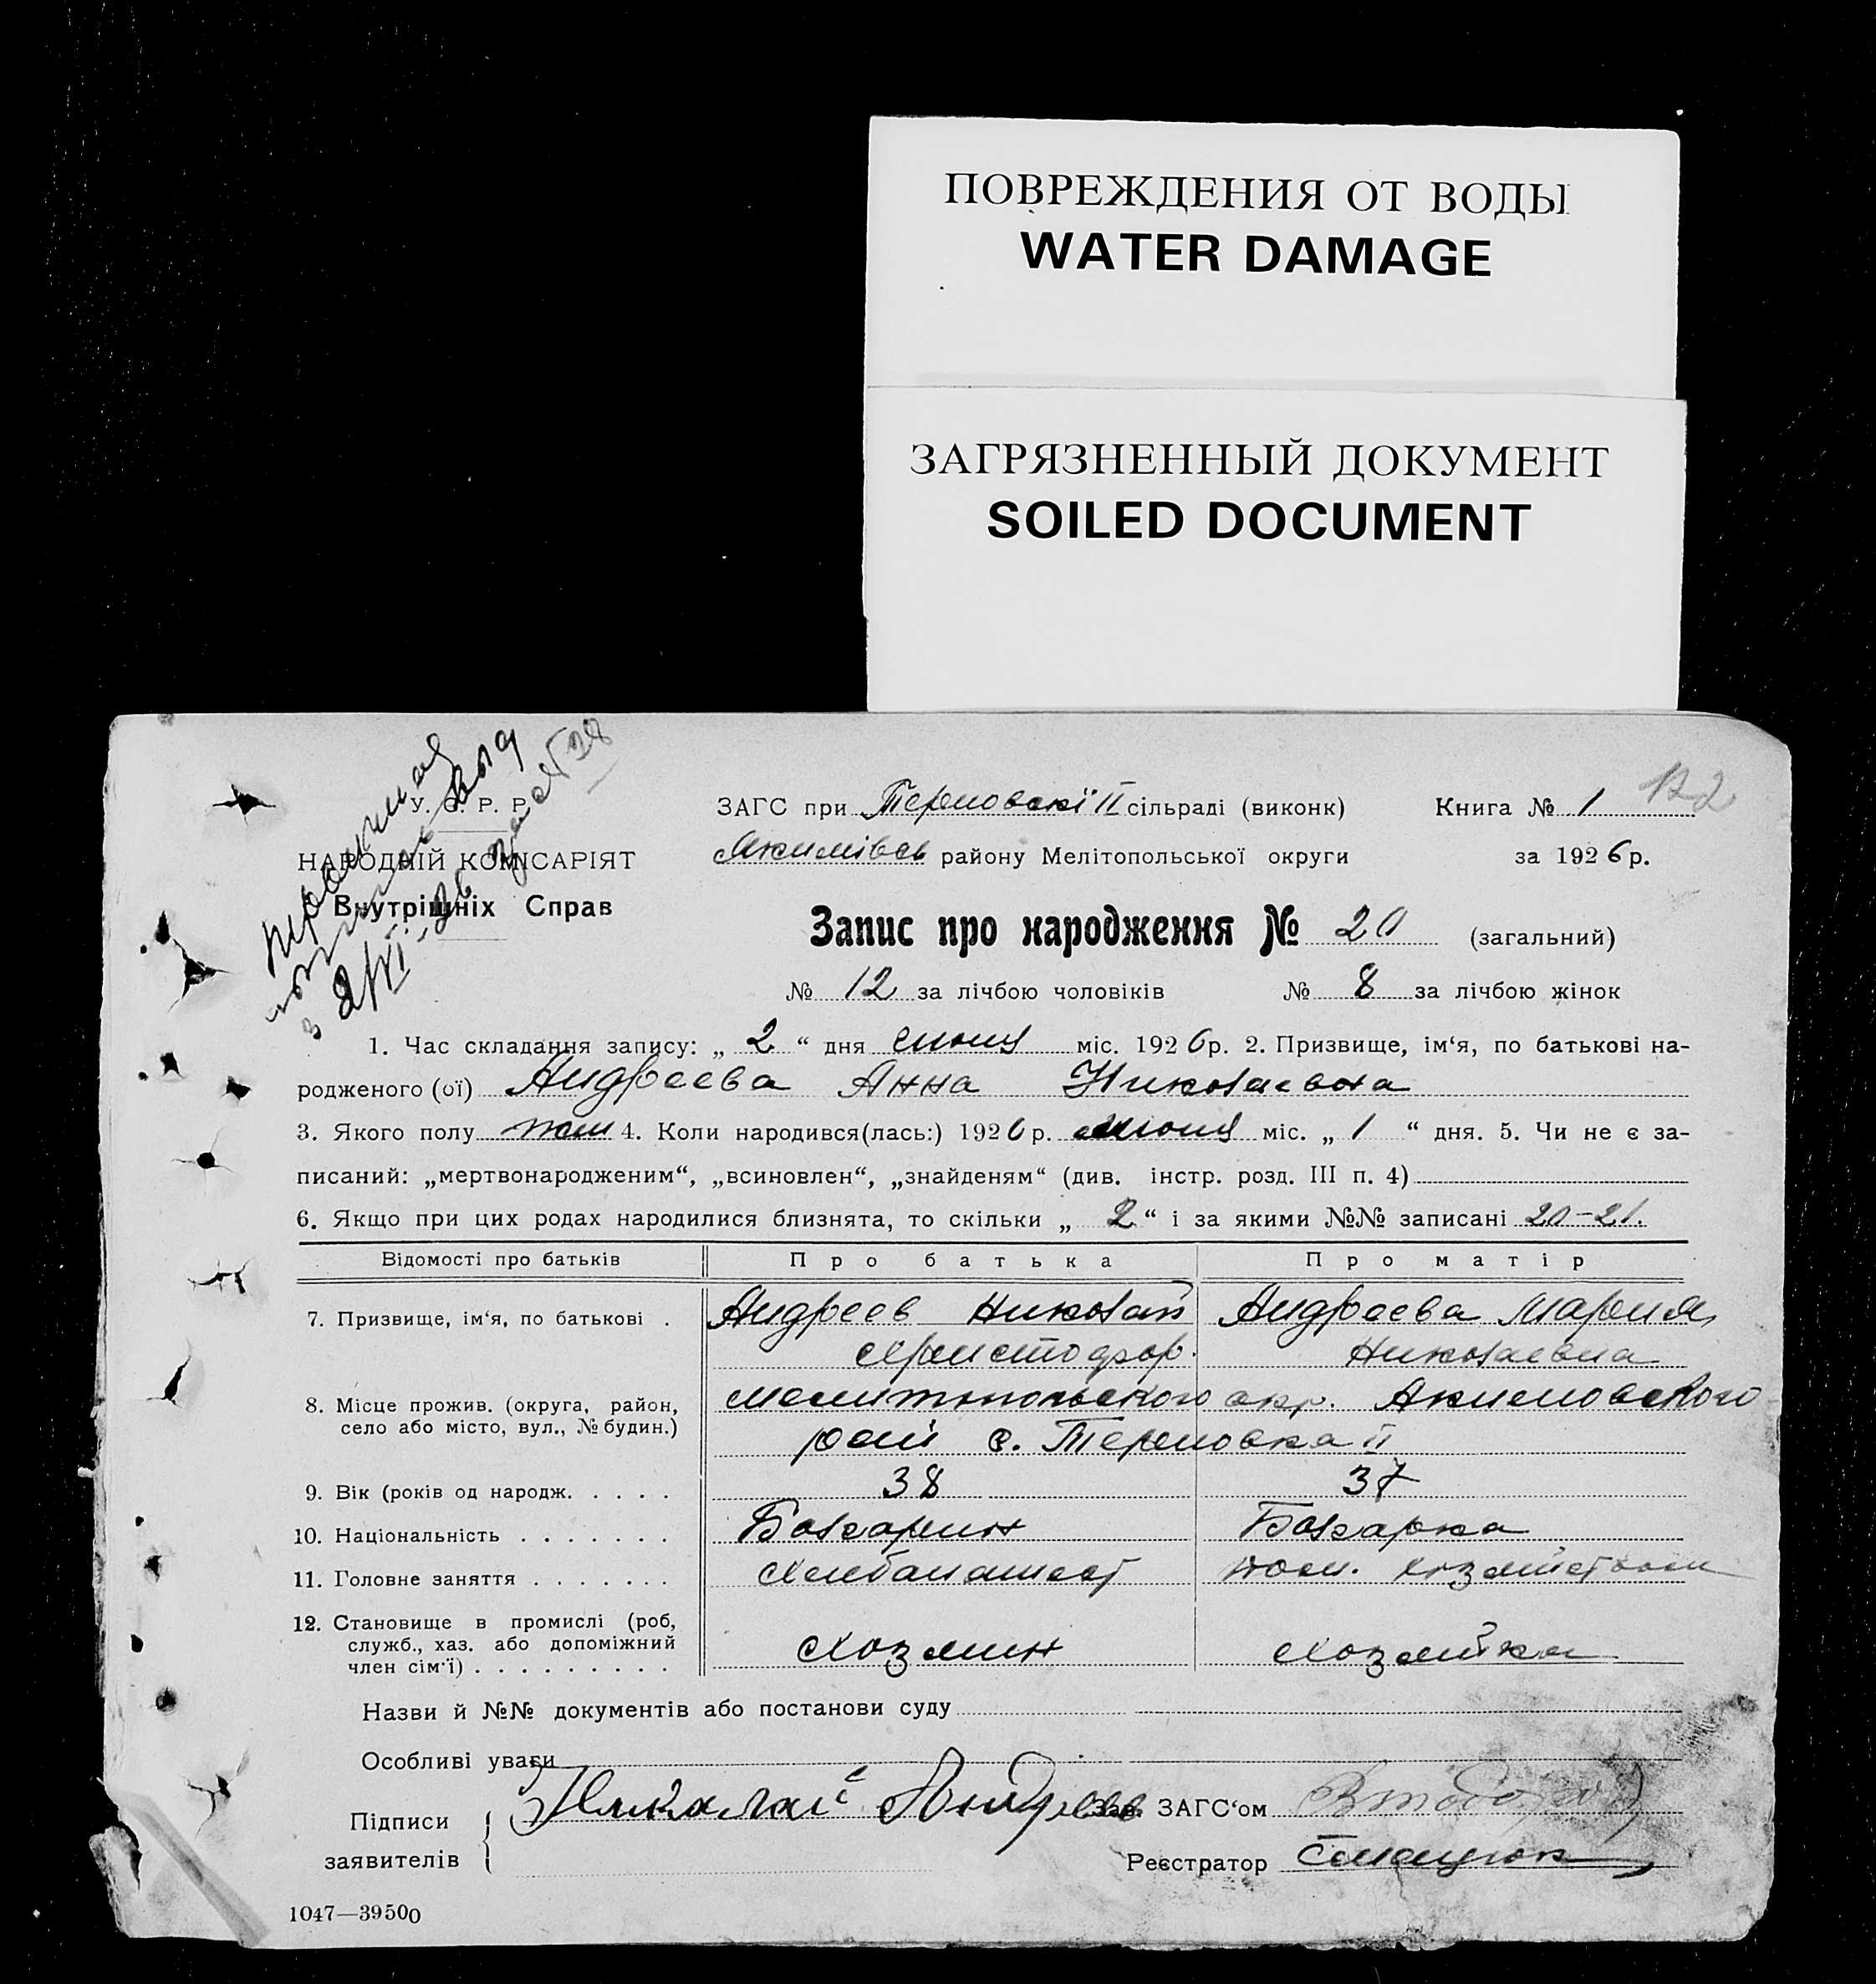 ПОВРЕЖДЕНИЯ ОТ ВОДЫ
WATER DAMAGE
ЗАГРЯЗНЕННЫЙ ДОКУМЕНТ
SOILED DOCUMENT
122
У. С. Р. Р.
НАРОДНІЙ КОМІСАРІЯТ
Внутрішніх Справ
ЗАГС при Терновскі II сільраді (виконк) Книга № 1
Якимівсь району Мелітопольської округи за 1926 р.
Запис про народження № 20 (загальний)
№ 12 за лічбою чоловіків № 8 за лічбою жінок
1. Час складання запису: „ 2 “ дня июня міс. 1926 р. 2. Призвище, ім‘я, по батькові на-
родженого (ої) Андреева Анна Николаевна
3. Якого полу жен 4. Коли народився(лась:) 1926 р. июня міс. „ 1 “ дня. 5. Чи не є за-
писаний: „мертвонародженим“, „всиновлен“, „знайденям“ (див. інстр. розд. III п. 4)
6. Якщо при цих родах народилися близнята, то скільки „ 2 “ і за якими №№ записані 20-21.
Відомості про батьків Про батька Про матір
7. Призвище, ім‘я, по батькові . Андреев Николай Андреева Мария
Христофор. Николаевна
8. Місце прожив. (округа, район, Мелитопольского окр. Акимовского
село або місто, вул., № будин.) рай с. Терновка II
9. Вік (років од народж. . . . . 38 37
10. Національність . . . . . . . Болгарин Болгарка
11. Головне заняття . . . . . . . Хлебопашест дом. хозяйством
12. Становище в промислі (роб,
служб., хаз. або допоміжний Хозяин Хозяйка
член сім‘ї) . . . . . . . . .
Назви й №№ документів або постанови суду
Особливі уваги
Підписи Николай Андреев Зав. ЗАГС‘ом
заявителів Реєстратор
1047—39500